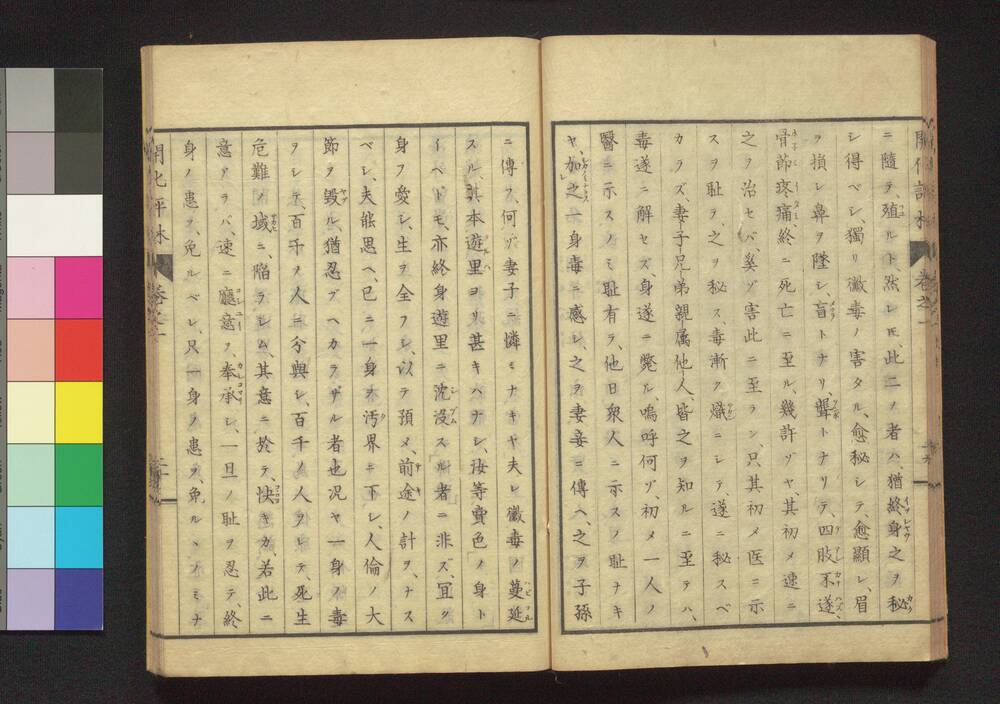 開化評林 卷之一
ニ隨テ殖ルト、然レ𪜈、此二ノ者ハ猶終身之ヲ秘
シ得ベシ、獨リ黴毒ノ害タル、愈秘シテ、愈顯レ、眉
ヲ損シ鼻ヲ墜シ、盲トナリ、聾トナリテ、四肢不遂、
骨節疼痛終ニ死亡ニ至ル、幾許ゾヤ、其初メ速ニ
之ヲ治セバ、奚ゾ害此ニ至ラン、只其初メ医ニ示
スヲ耻テ、之ヲ秘ス、毒漸ク熾ニシテ遂ニ秘スベ
カラズ、妻子兄弟親属他人、皆之ヲ知ルニ至テハ、
毒遂ニ解セズ、身遂ニ斃ル、嗚呼何ゾ、初メ一人ノ
醫ニ示スノミ耻有テ、他日衆人ニ示スノ耻ナキ
ヤ、加之一身毒ニ感シ、之ヲ妻妾ニ傳ヘ、之ヲ子孫
ニ傳フ、何ゾ妻子ニ憐ミナキヤ夫レ黴毒ノ蔓延
スル、其本遊里ヨリ甚キハナシ、汝等賣色ノ身ト
イヘドモ、亦終身遊里ニ沈没スル者ニ非ズ、宜ク
身ヲ愛シ、生ヲ全フシ、以テ預メ前途ノ計ヲ、ナス
ベシ、夫能思ヘ、已ニ一身ヲ汚界ニ下シ、人倫ノ大
節ヲ毀ル、猶忍ブベカラザル者也況ヤ一身ノ毒
ヲシテ、百千ノ人ニ分與シ、百千ノ人ヲシテ、死生
危難ノ域ニ、陥ラシム、其意ニ於テ、快キカ若此ニ
意アラバ、速ニ廳意ヲ、奉承シ、一旦ノ耻ヲ忍テ、終
身ノ患ヲ、免ルベシ、只一身ノ患ヲ、免ルヽノミナ
開化評林 卷之一